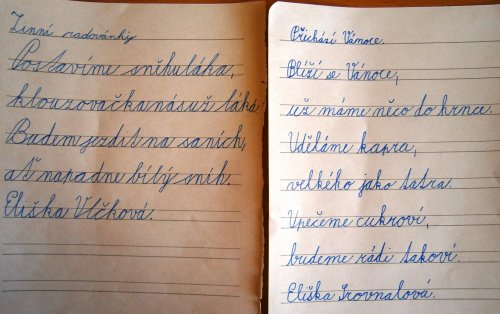 Zimní radovánky
Postavíme sněhuláka,
klouzovačka nás už láká.
Budem jezdit na saních,
ať napadne bílý sníh.
Eliška Vlčková.
Přichází Vánoce.
Blíží se Vánoce,
už máme něco do hrnce.
Uděláme kapra,
velkého jako tatra.
Upečeme cukroví,
budeme rádi takoví.
Eliška Srovnalová.